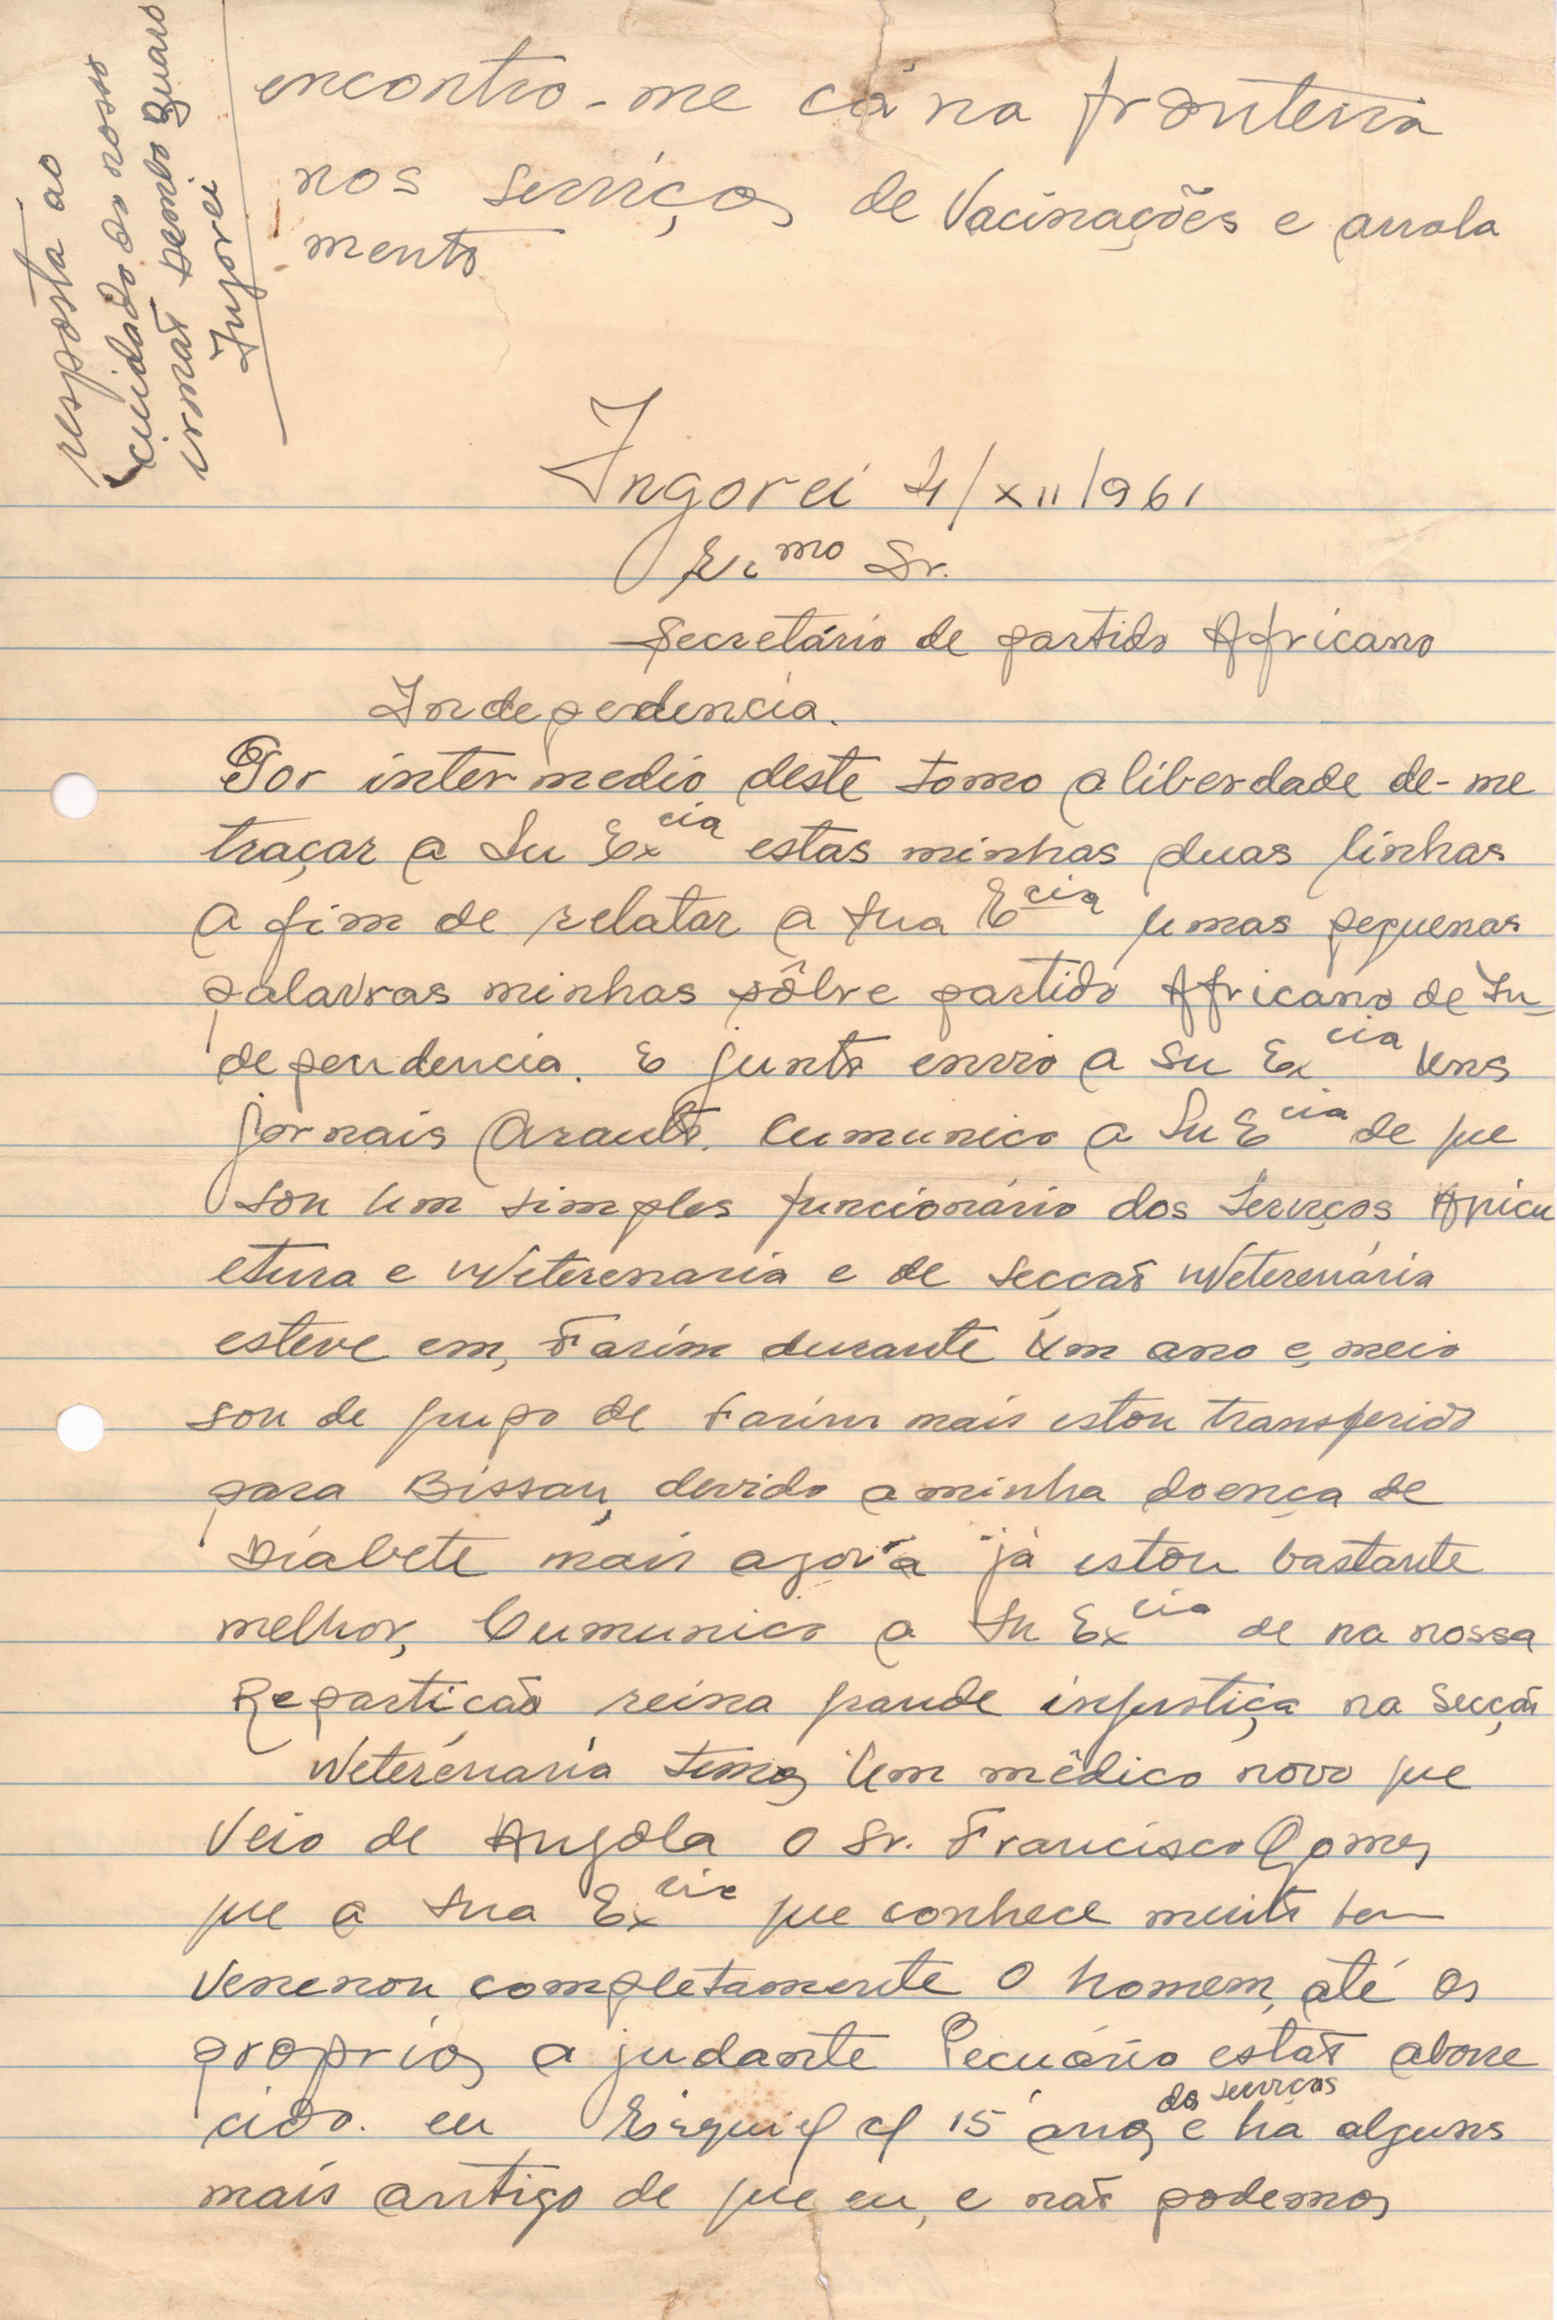 resposta ao
cuidado do nosso
irmão Dembo Buaro
Ingorei
encontro-me cá na fronteira
nos serviços de Vacinações e arrola
mento
Ingorei 4/XII/961
Ex.mo Sr.
Secretário de partido Africano
Independencia.
Por intermedio deste tomo a liberdade de-me
traçar a Su Excia estas minhas duas linhas
a fim de relatar a Sua Ecia umas pequenas
palavras minhas sôbre partido Africano de In-
dependencia. E junto envio a Su Excia uns
jornais Arauto. Cumunico a Su Ecia de que
sou um simples funcionário dos Serviços Agricu
ltura e Weterenaria e de secção Weterenária
esteve em, Farim durante um ano e meio
sou de grupo de Farim mais estou transferido
para Bissau, devido a minha doença de
Diabete mais agora já estou bastante
melhor, Cumunico a Su Excia de na nossa
Repartição reina grande injustiça na Secção
Weterénaria temos um médico novo que
Veio de Angola o Sr. Francisco Gomes
que a Sua Excia que conhece muito bem
Venenou completamente o homem, até os
proprios ajudante Pecuário estão aborre
cido. eu Ezequiel c/ 15 anos e há alguns
dos serviços
mais antigo de que eu, e não podemos